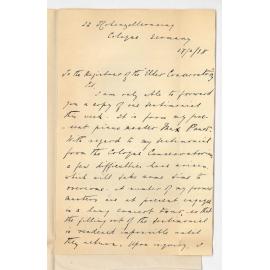 22 Hohenzollernring
Cologne Germany
To the Registrar of the Elder Conservatorium
I am only able to forward
you a copy of one testimonial
this week. It is from my pre-
sent piano master Max Pauer.
With regard to my testimonial
from the Cologne Conservatorium
a few difficulties have arisen
which will take some time to
overcome. A number of my former
masters are at present engaged
on a long concert tour, so that
the filling out of the testimonial
is rendered impossible until
they return. Upon inquiry, I